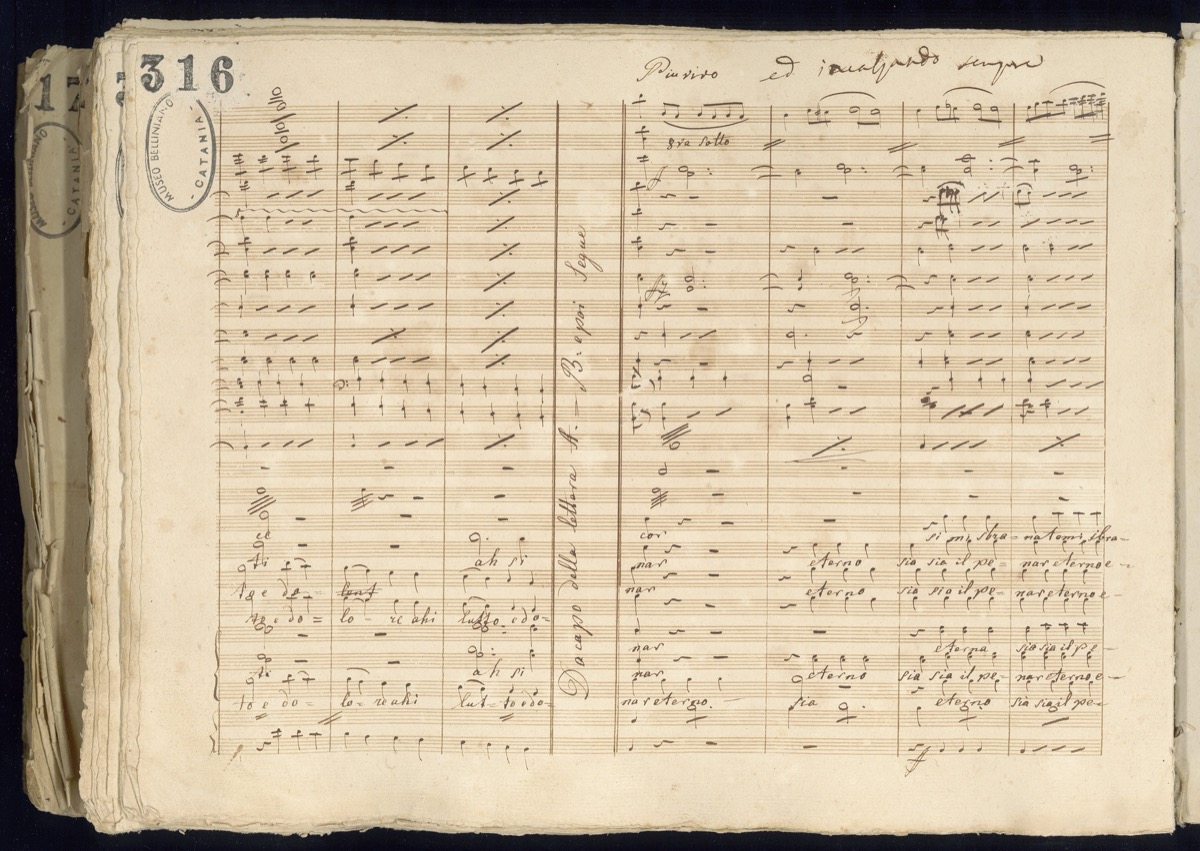 316
MUSEO BELLINIANO
- CATANIA -
Più vivo ed incalzando sempre
8va sotto
Da capo della lettera A. = B. e poi Segue
ce cor si mi sbra= natemi sbra-
ti ah si nar eterno sia sia il pe= nar eterno e-
to e do= nar eterno sia sia il pe= nar eterno e-
to e do= lo- re ahi lutto e do=
nar eterna sia sia il pe-
ti ah si nar eterno sia sia il pe- nar eterno e-
to e do= lo- re ahi lut= to e do= nar eterno. sia eterno sia sia il pe-
ff